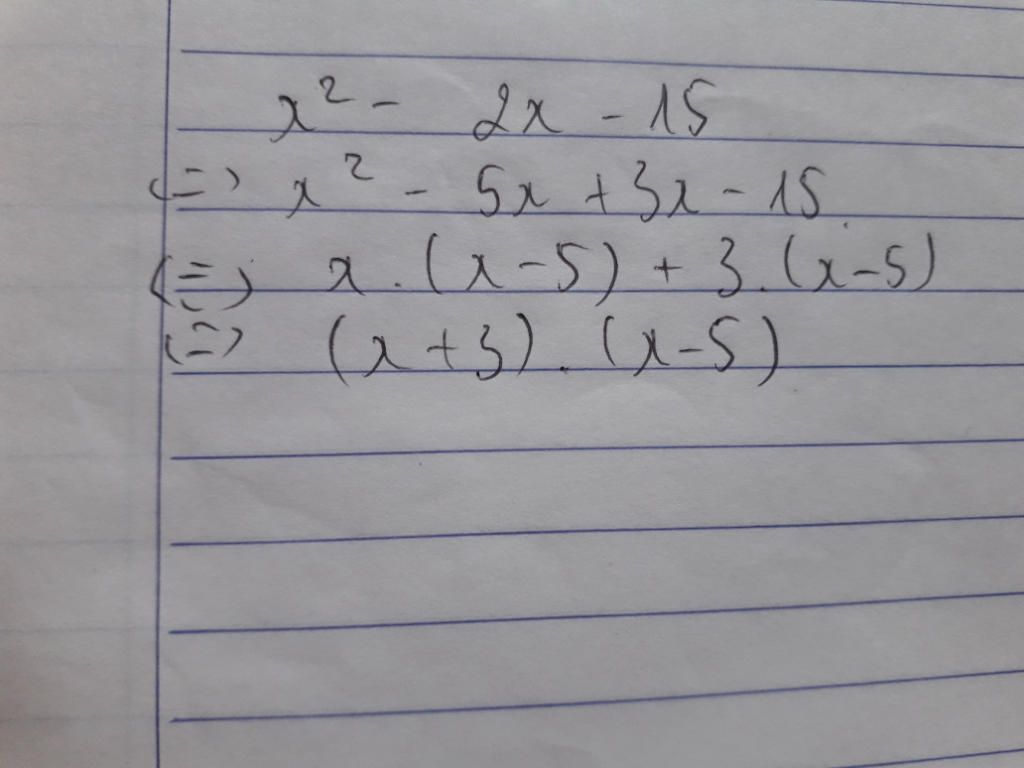 x² - 2x - 15
(=) x² - 5x + 3x - 15
(=) x . (x - 5) + 3 . (x - 5)
(=) (x + 3) . (x - 5)